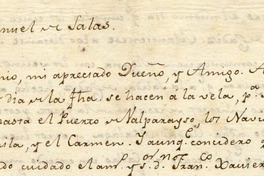 nuel de Salas.
nio, mi apreciado Dueño, y Amigo. A
dia de la fha se hacen a la vela, p.ª
asta el Puerto de Valparayso, los Navi
ila, y el Carmen. Taunq.e concidero
do cuidado el an.r y s.r d.n Fran.co Xavier